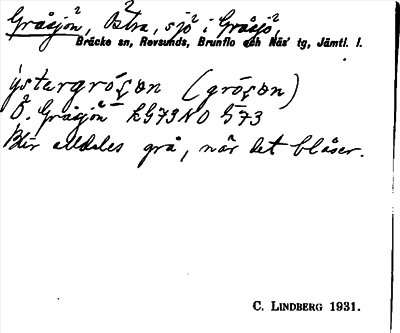 Gråsjön², Östra, sjö² i Gråsjö²,
Bräcke sn, Revsunds, Brunflo och Näs' tg, Jämtl. l.
ýstergróʃɔn (gróʃɔn)
Ö. Gråsjön² KG73NO 573
Blir alldeles grå, när det blåser.
C. LINDBERG 1931.